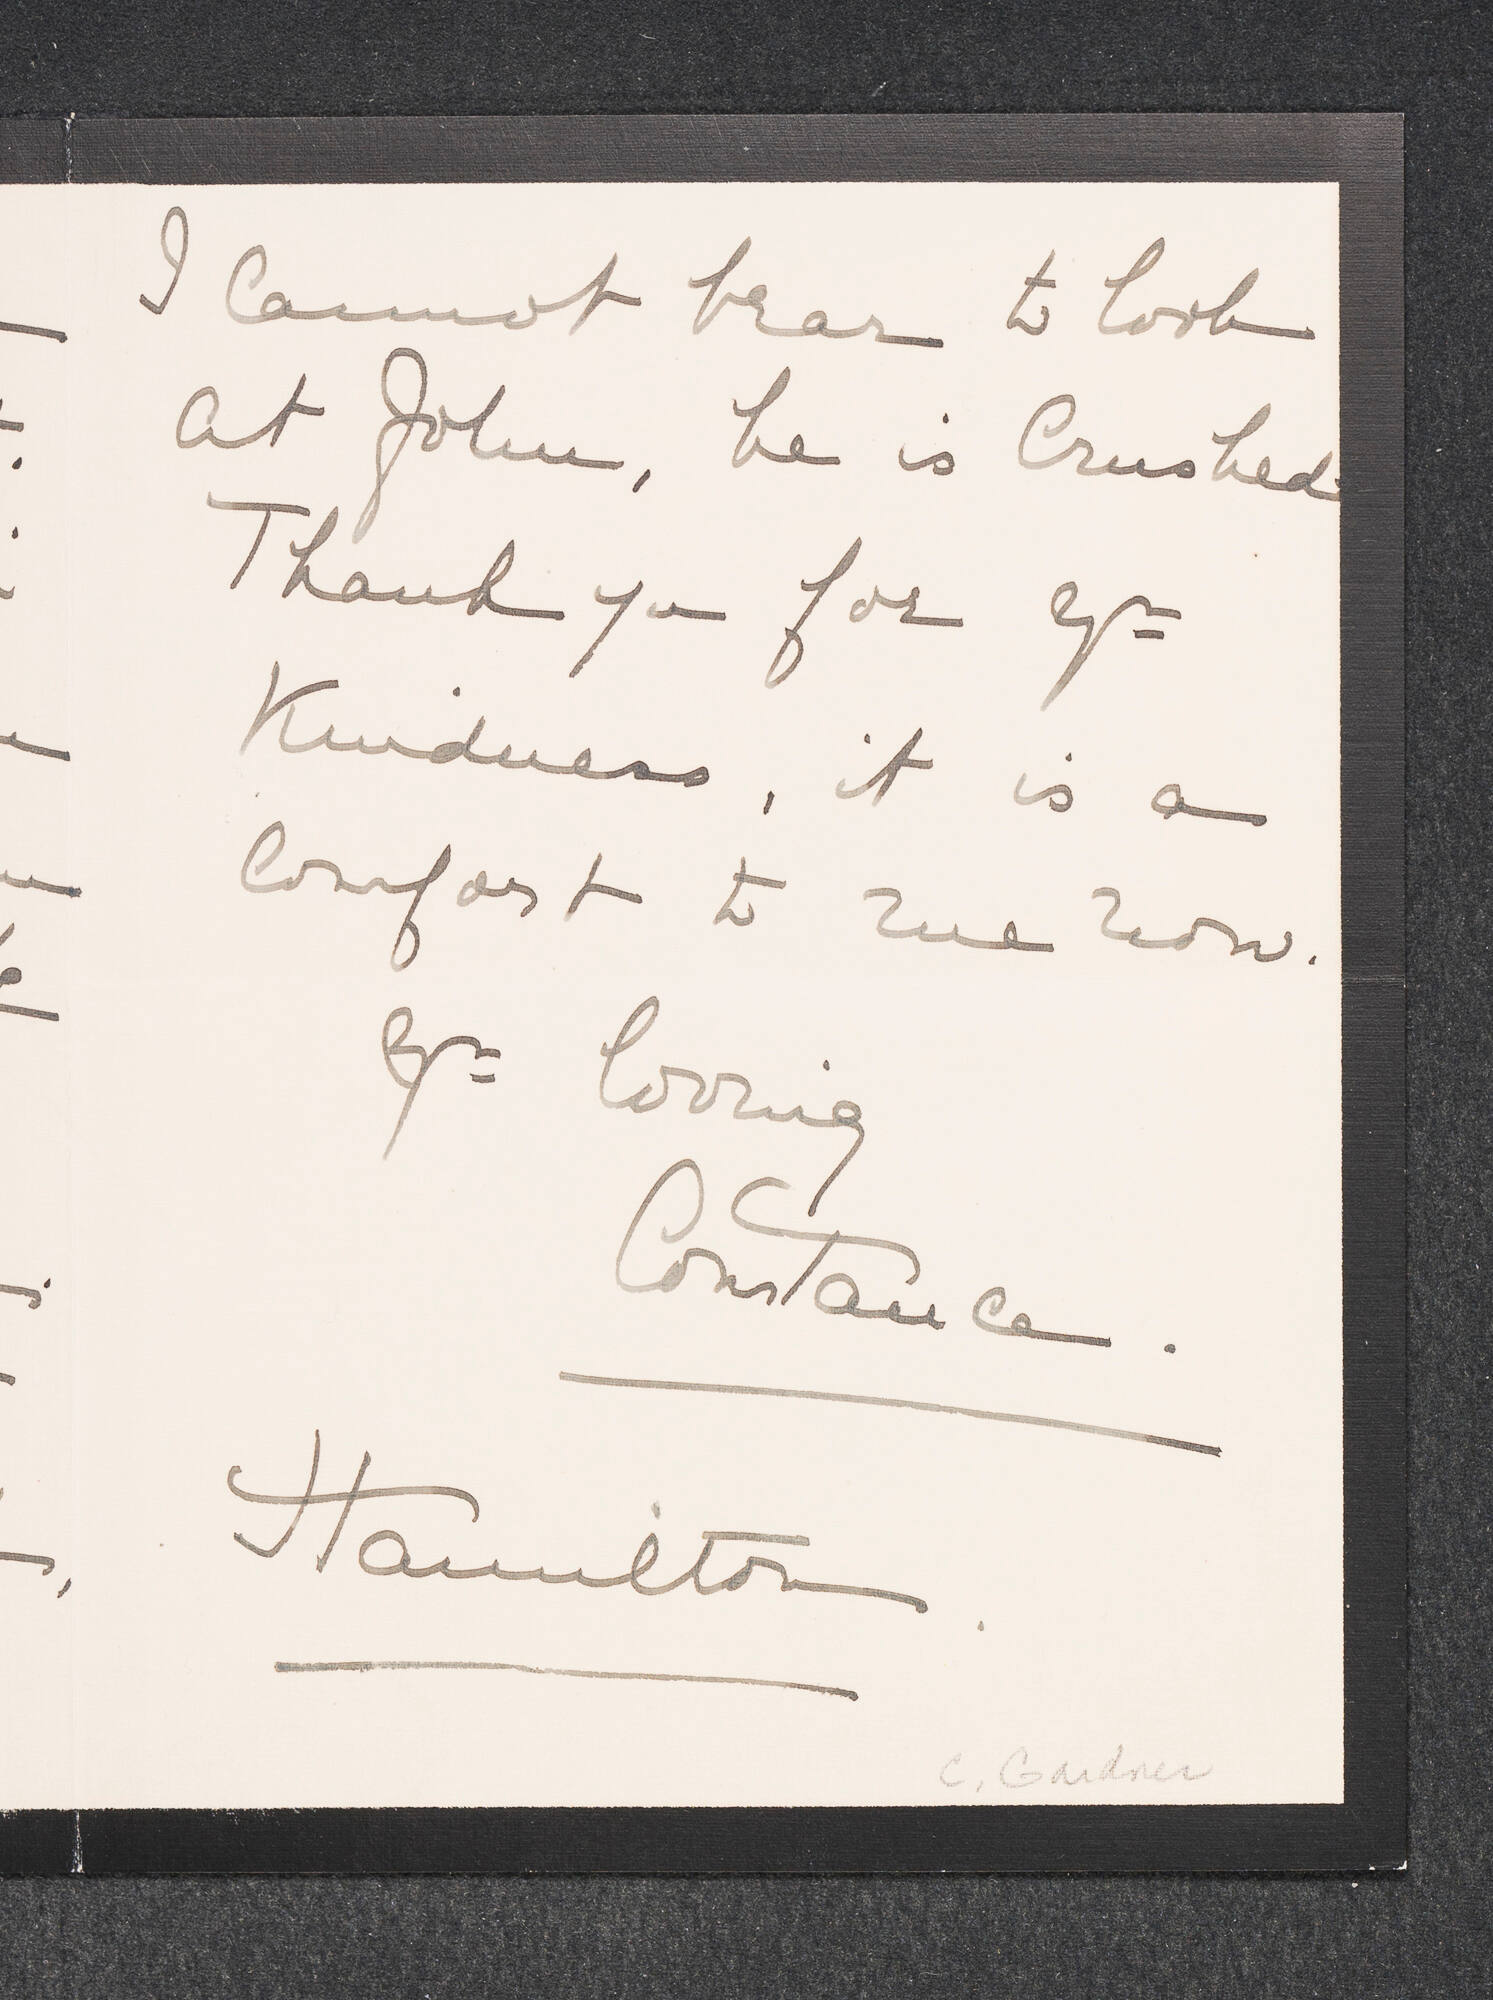 I cannot bear to look
at John, he is crushed.
Thank you for yr
kindness, it is a
comfort to me now.
yr loving
Constance.
Hamilton.
C. Gardner